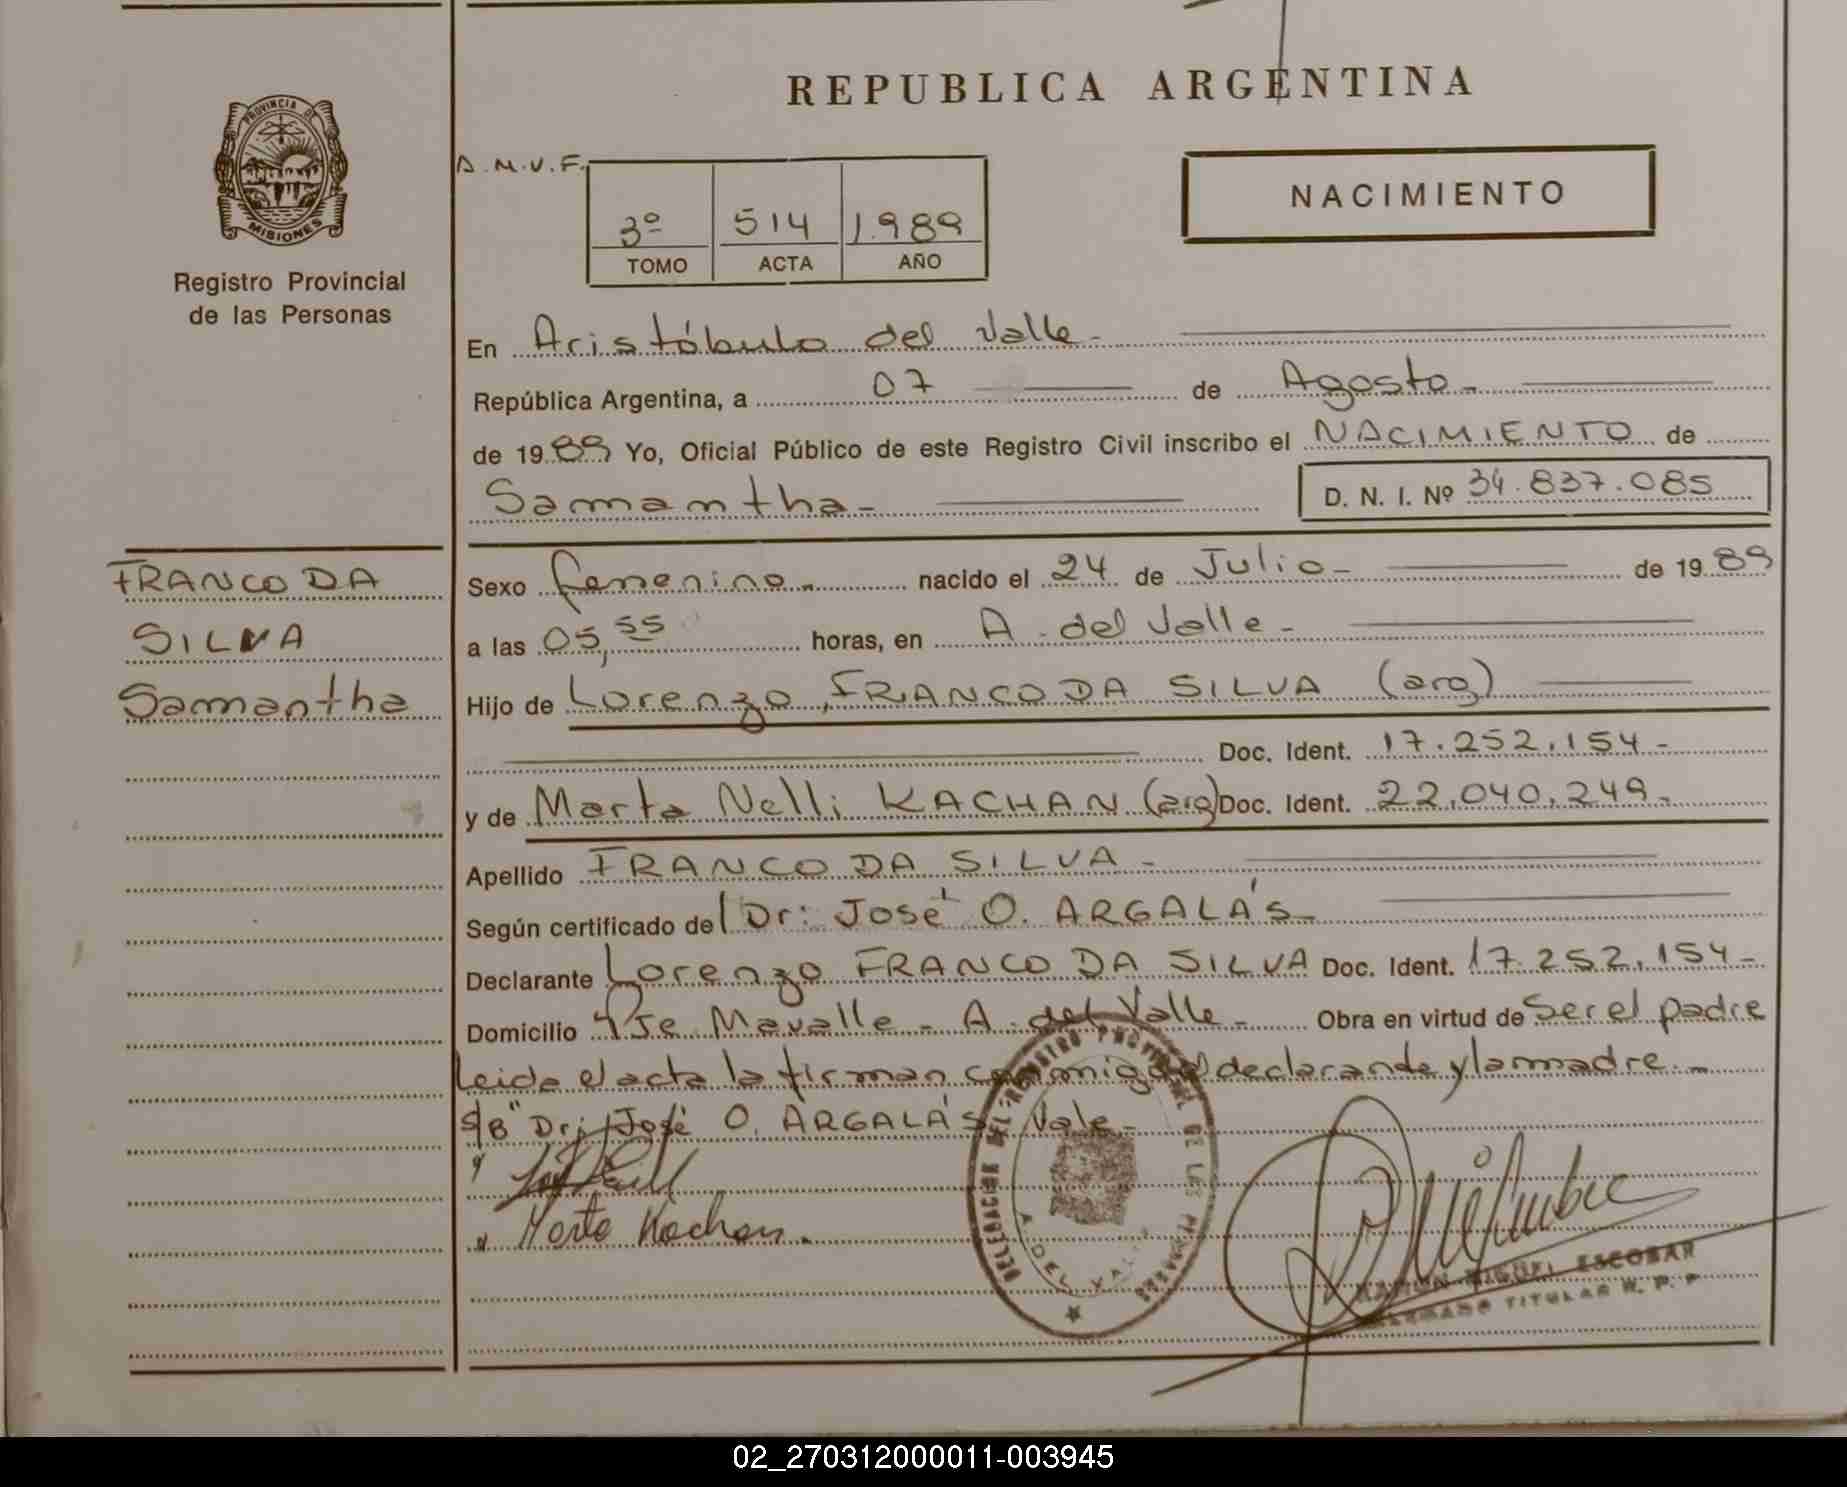 REPUBLICA ARGENTINA
PROVINCIA DE
MISIONES
Registro Provincial
de las Personas
A.M.V.F.
3º 514 1.989
TOMO ACTA AÑO
NACIMIENTO
En Aristóbulo del Valle.
República Argentina, a 07 de Agosto.
de 1989 Yo, Oficial Público de este Registro Civil inscribo el NACIMIENTO de
Samantha.
D. N. I. Nº 34.837.085
FRANCO DA
SILVA
Samantha
Sexo femenino. nacido el 24 de Julio. de 1989
a las 05,55 horas, en A. del Valle.
Hijo de Lorenzo, FRANCO DA SILVA (arg)
Doc. Ident. 17.252.154.
y de Marta Nelli KACHAN (arg) Doc. Ident. 22.040.249.
Apellido FRANCO DA SILVA.
Según certificado de Dr: José O. ARGALÁS.
Declarante Lorenzo FRANCO DA SILVA Doc. Ident. 17.252.154.
Domicilio Pje Mavalle. A. del Valle. Obra en virtud de Ser el padre
Leida el acta la firman conmigo el declarande y la madre.
S/B" Dr: José O. ARGALÁS Vale.
Marta Kachan.
DELEGACION DEL REGISTRO PROVINCIAL DE LAS PERSONAS
A. DEL VALLE
RAMON MIGUEL ESCOBAR
TITULAR R. P. P.
02_270312000011-003945